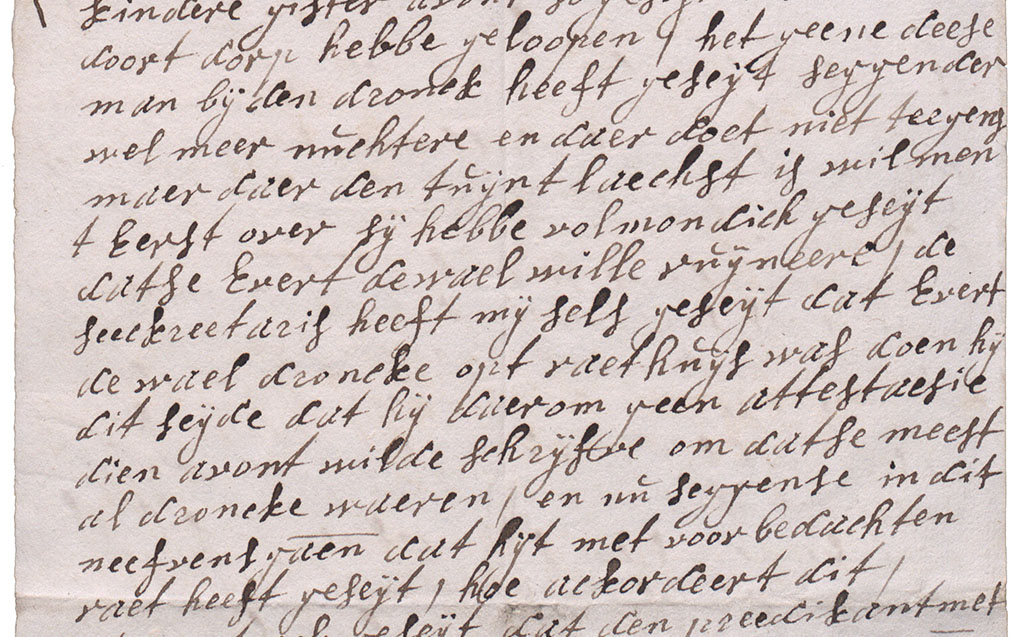 kindere gister avont
doort dorp hebbe geloopen / het geene deese
man by den dronck heeft geseyt seggender
wel meer nuchtere en daer doet niet tergens
maer daer den tuynt laechst is wilmen
t Eerst over sy hebbe volmondich geseyt
datse Evert dewael wille ruyneere / de
seeckreetaris heeft my self geseyt dat Evert
de wael droncke opt raethuys was doen hy
dit seyde dat hy daerom geen attestaesie
dien avont wilde schryfve om datse meest
al droncke waeren / en nu seggense in dit
gaen dat hyt met voor bedachten
raet heeft geseyt / hoe ackordeert dit /
geseyt dat den preedikant met